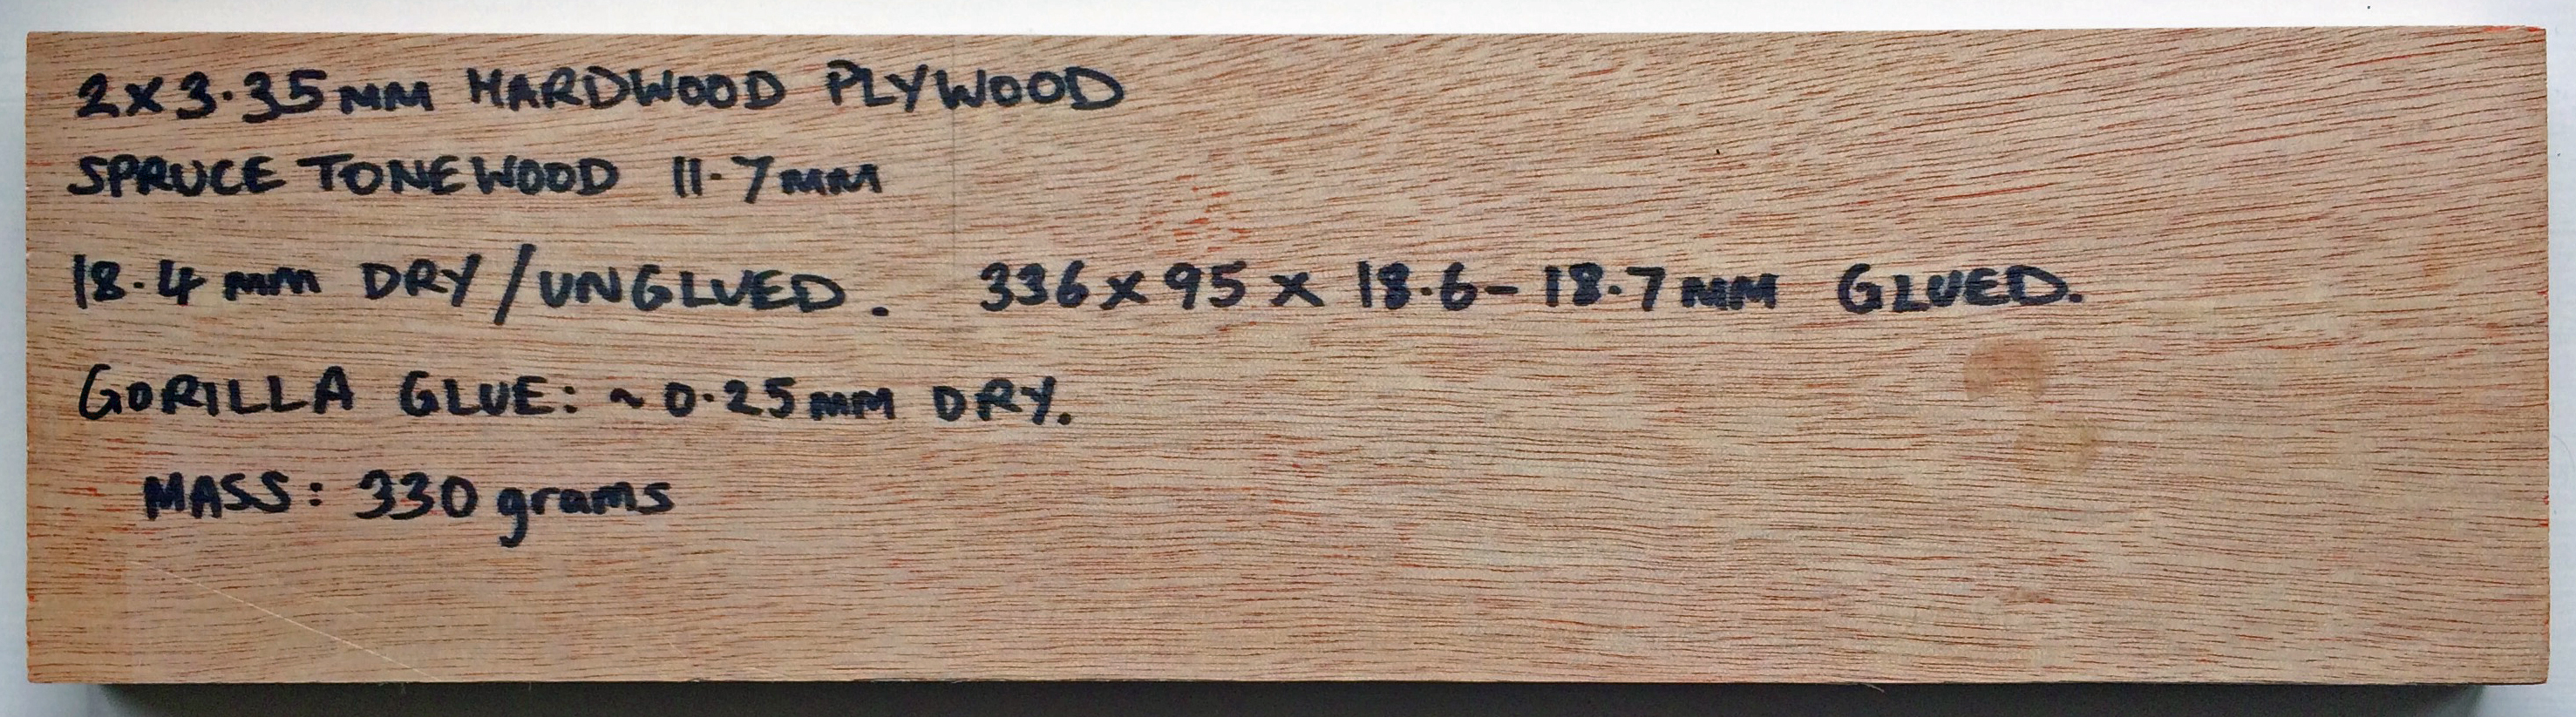 2x3.35mm HARDWOOD PLYWOOD
SPRUCE TONEWOOD 11.7mm
18.4mm DRY/UNGLUED. 336x95x18.6-18.7mm GLUED.
GORILLA GLUE: ~0.25mm DRY.
MASS: 330 grams